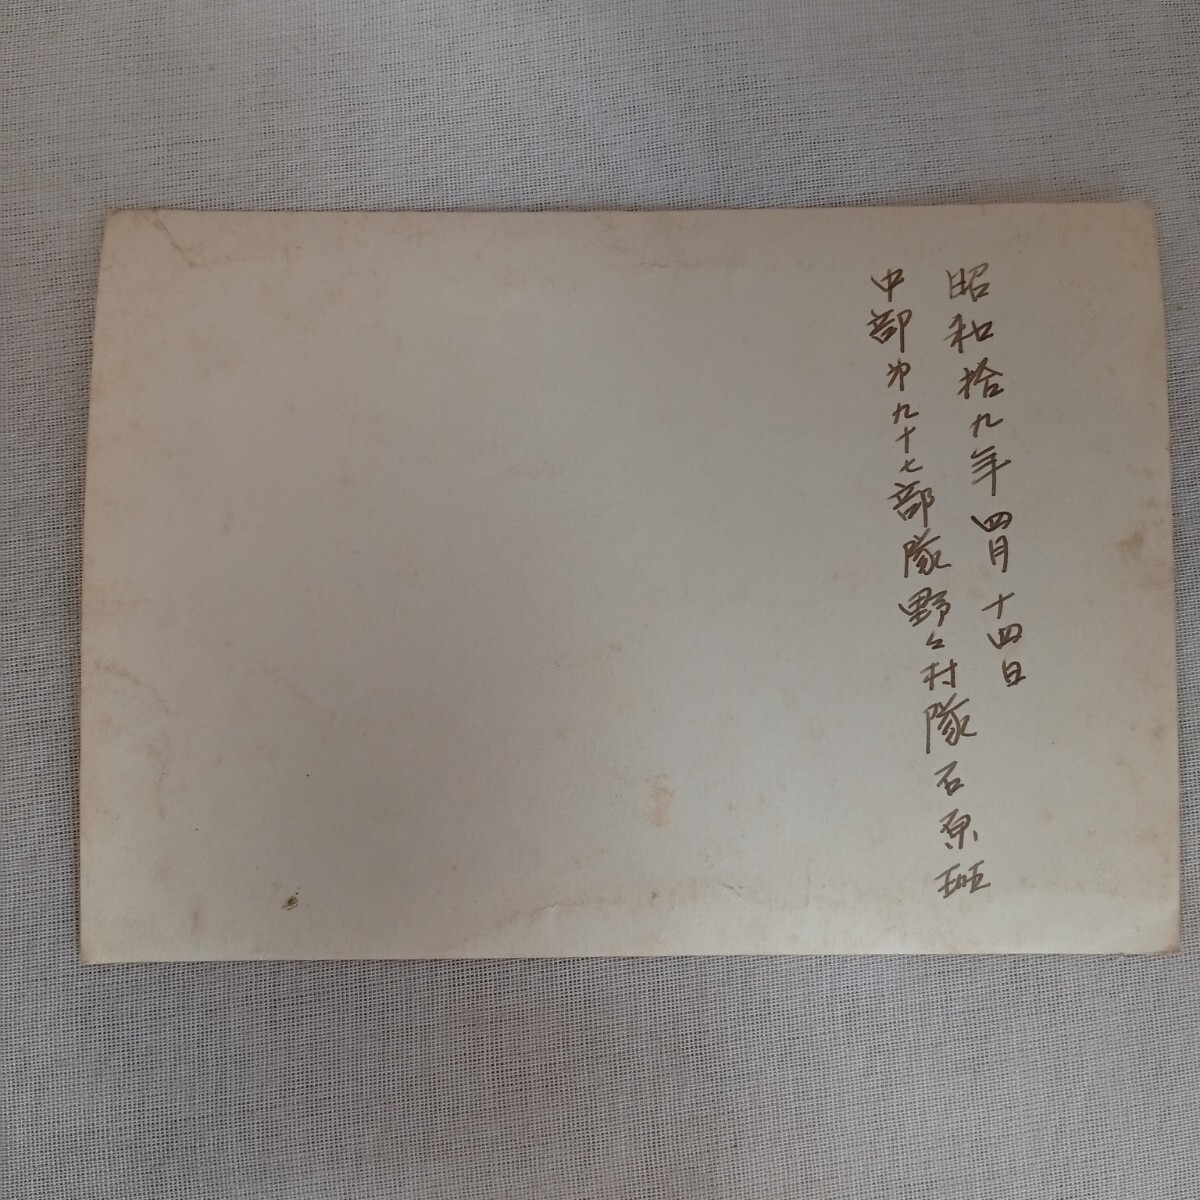 昭和拾九年四月十四日
中部第九十七部隊野々村隊石原班